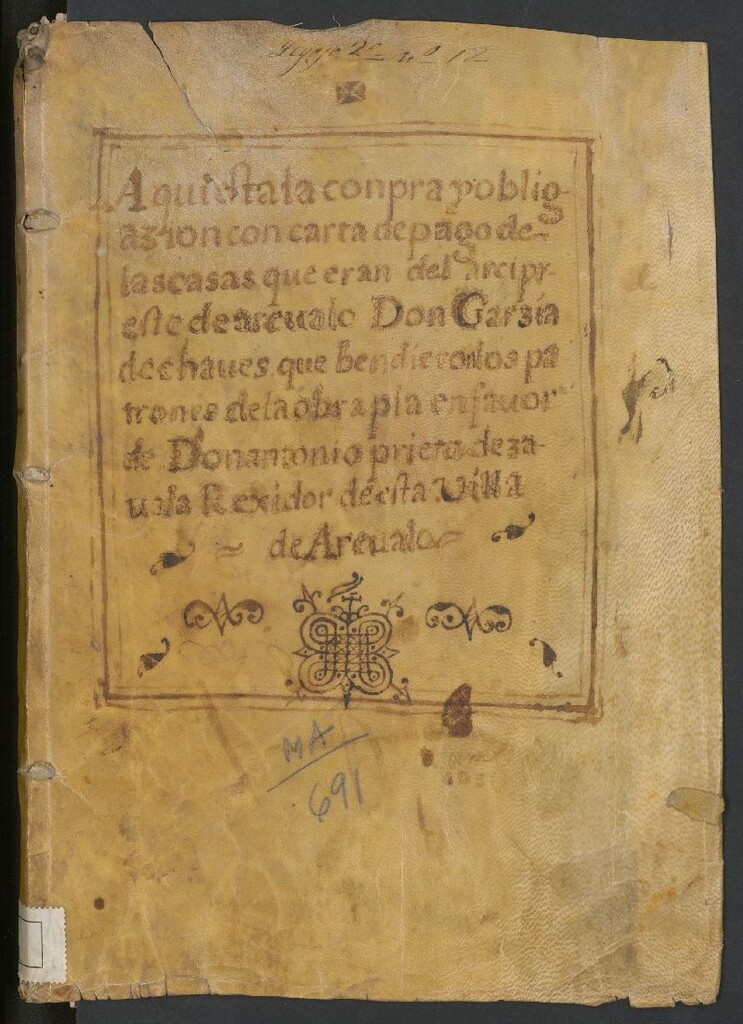 Legajo 2º nº 12
Aqui esta la conpra y oblig-
azion con carta de pago de-
las casas que eran del arcipr-
este de areualo Don Garsia
de chaues que bendieron los pa
trones de la obra pia en fauor
de Don antonio prieto de za-
uala Rexidor de esta Uilla
de Areualo
MA
691